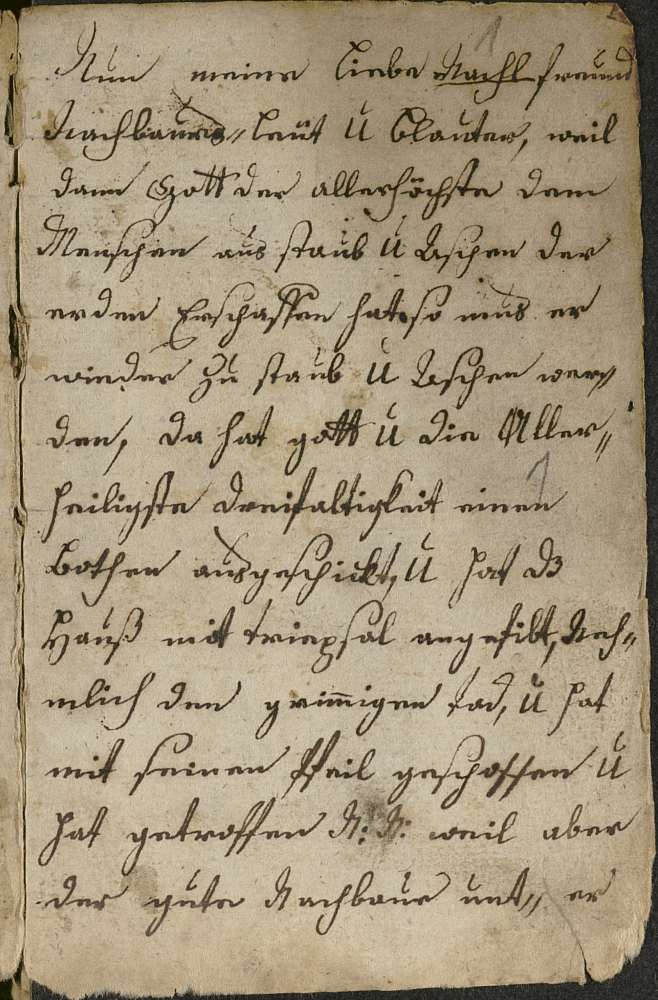 Nun meine liebe Nachl freund
Nachbaurs„ leut u blauter, weil
dann Gott der allerhöchste dem
Menschen aus staub u Aschen der
erden Erschaffen hat so mus er
wieder zu staub u Aschen wer„
den, da hat gott u die Aller„
heiligste dreifaltigkeit einen
Bothen ausgeschickt, u hat dz
Hauß mit triepsal angefilt, Neh„
mlich den grimigen tod, u hat
mit seinen Pfeil geschossen u
hat getroffen N: N: weil aber
der gute Nachbaur unt„ er